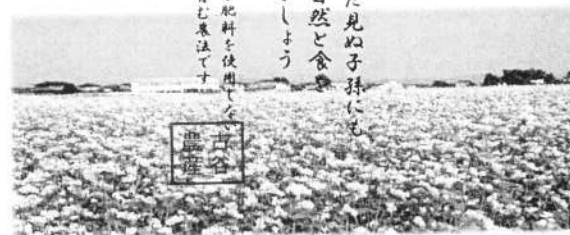 た見ぬ子孫にも
然と食を
しょう
肥料を使用しない
む農法です
古谷
農産